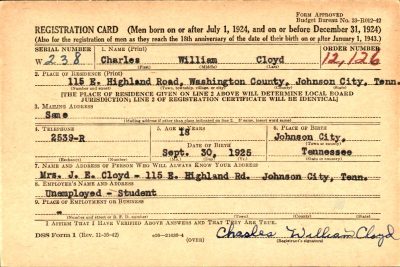 FORM APPROVED
Budget Bureau No. 33-R012-42
REGISTRATION CARD (Men born on or after July 1, 1924, and on or before December 31, 1924)
(Also for the registration of men as they reach the 18th anniversary of the date of their birth on or after January 1, 1943.)
SERIAL NUMBER 1. NAME (Print) ORDER NUMBER
W 238 Charles William Cloyd 12,126
(First) (Middle) (Last)
2. PLACE OF RESIDENCE (Print)
115 E. Highland Road, Washington County, Johnson City, Tenn.
(Number and street) (Town, township, village, or city) (County) (State)
[THE PLACE OF RESIDENCE GIVEN ON LINE 2 ABOVE WILL DETERMINE LOCAL BOARD
JURISDICTION; LINE 2 OF REGISTRATION CERTIFICATE WILL BE IDENTICAL]
3. MAILING ADDRESS
Same
[Mailing address if other than place indicated on line 2. If same, insert word same]
4. TELEPHONE 5. AGE IN YEARS 6. PLACE OF BIRTH
2539-R 18 Johnson City,
DATE OF BIRTH (Town or county)
Sept. 30, 1925 Tennessee
(Exchange) (Number) (Mo.) (Day) (Yr.) (State or country)
7. NAME AND ADDRESS OF PERSON WHO WILL ALWAYS KNOW YOUR ADDRESS
Mrs. J. E. Cloyd - 115 E. Highland Rd. Johnson City, Tenn.
8. EMPLOYER'S NAME AND ADDRESS
Unemployed - Student
9. PLACE OF EMPLOYMENT OR BUSINESS
-
(Number and street or R. F. D. number) (Town) (County) (State)
I AFFIRM THAT I HAVE VERIFIED ABOVE ANSWERS AND THAT THEY ARE TRUE.
DSS Form 1 (Rev. 11-16-42) (OVER) Charles William Cloyd
(Registrant's signature)